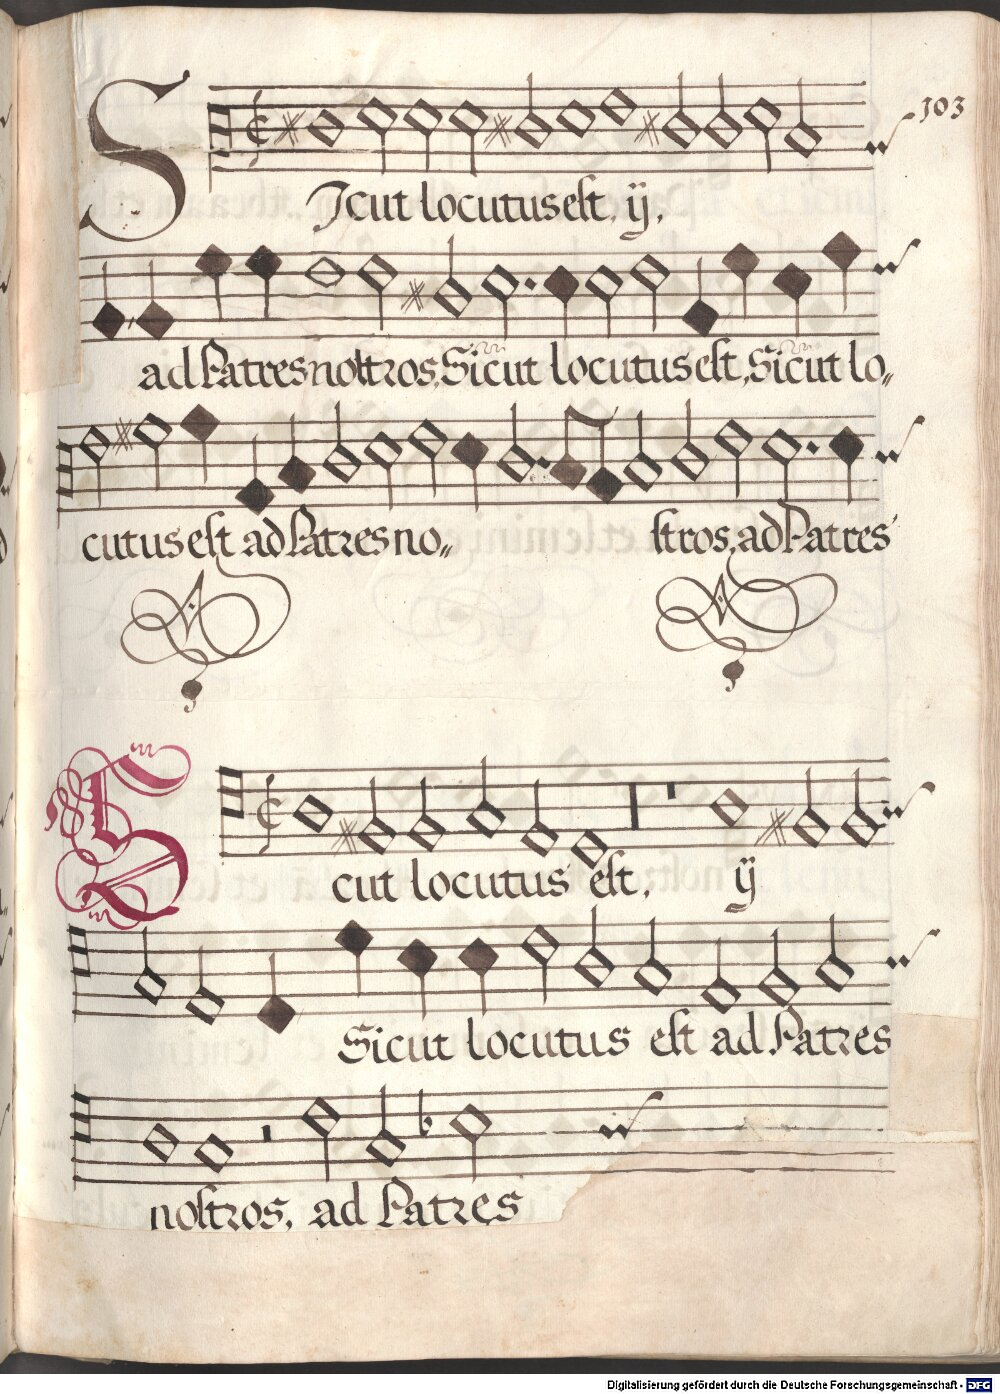 103
SIcut locutus est, ij,
ad Patres nostros, Sicut locutus est, Sicut lo„
cutus est ad Patres no„ stros, ad Patres
Sicut locutus est, ij
Sicut locutus est ad Patres
nostros, ad Patres
Digitalisierung gefördert durch die Deutsche Forschungsgemeinschaft - DFG